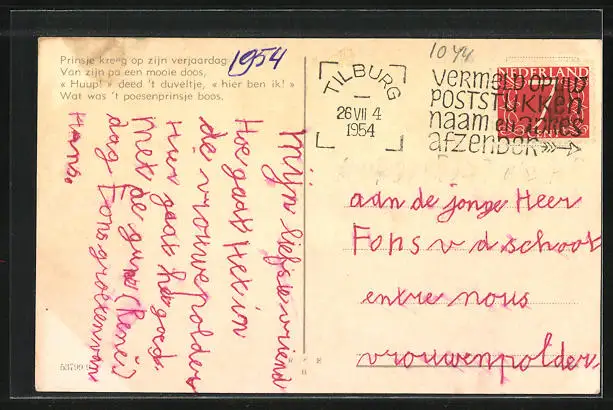 Prinsje kreeg op zijn verjaardag
Van zijn pa een mooie doos,
« Huup! » deed 't duveltje, « hier ben ik! »
Wat was 't poesenprinsje boos.
1954
1044
TILBURG
26 VII 4
1954
VERMELD OP UW
POSTSTUKKEN
naam en adres
afzender
NEDERLAND
Mijn liefste vriend
Hoe gaat Het in
de vrouwepolders
Hier gaat het goed.
Met de gunt (René)
dag Fons groeten van
Hans.
aan de jonge Heer
Fons v d schoot
entre nous
vrouwenpolder.
53799